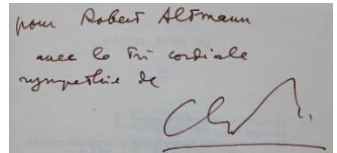 pour Robert Altmann
avec la très cordiale
sympathie de